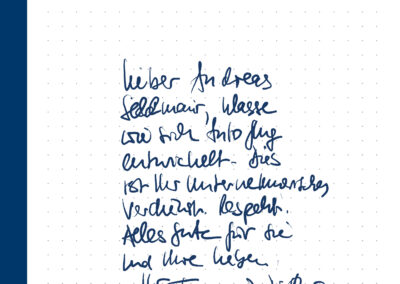 Lieber Andreas
Sedlmair, klasse
wie sich
entwickelt. Dies
ist Ihr unternehmerisches
Verdienst. Respekt.
Alles Gute für Sie
und Ihre Lieben